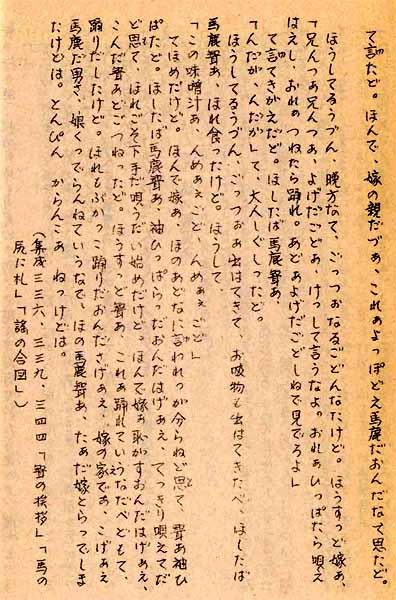 て訁たど。ほんで、嫁の親だづぁ、これぁよっぽどえ馬鹿だおんだなて思たど。
ほうしてるうづん、晩方なて、ごっつおなるごどんなたけど。ほうすっど嫁ぁ、
「兄んつぁ兄んつぁ、よげだごどぁ、けっして言うなよ。おれぁひっぱたら唄え
はえし、おれのつねたら踊れ。あどぁよげだごどしねで見でろよ」
て言てきがえだど。ほしたば馬鹿聟ぁ、
「んだが、んだが」して、大人しぐしったど。
ほうしてるうづん、ごっつおぁ出はてきて、お吸物も出はてきたべ、ほしたば
馬鹿聟ぁ、ほれ食ったけど。ほうして、
「この味噌汁ぁ んめぁえごど、んめぁえごど」
てほめだけど。ほんで嫁ぁ、ほのあどなに言われっが分らねど思て、聟ぁ袖ひ
ぱたど。ほしたば馬鹿聟ぁ、袖ひっぱらっだおんだはげぁえ、てっきり唄えてだ
ど思て、ほれごそ下手だ唄うだい始めだけど。ほんで嫁ぁ恥がすおんだはげぁえ、
こんだ聟ぁどごつねったど。ほうすっど聟ぁ、これぁ踊れていうなだべどもて、
踊りだしたけど。ほれもぶかっこ踊りだおんださげぁえ…嫁の家であ、こげぁえ
馬鹿だ男さ、娘くっでらんねていうなで、ほの馬鹿聟ぁ、たぁだ嫁とらっでしま
たけどは。とんぴん からんこぁ ねっけどは。
(集成三三六、三三九、三四四「聟の挨拶」「馬の
尻に札」「謡の合図」)